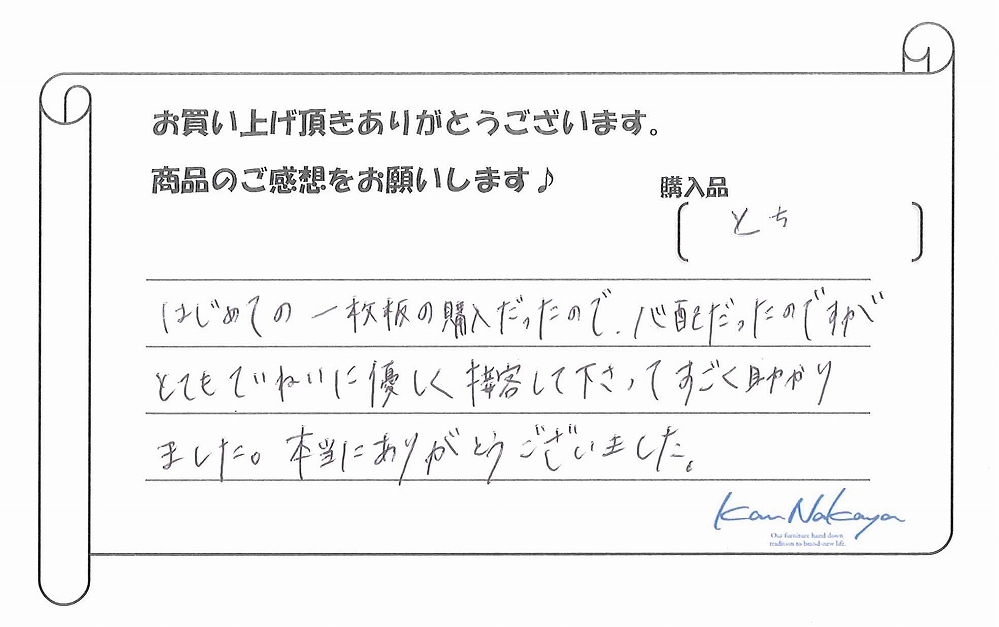 お買い上げ頂きありがとうございます。
商品のご感想をお願いします♪
購入品
とち
はじめての一枚板の購入だったので、心配だったのですが
とてもていねいに優しく接客して下さってすごく助かり
ました。本当にありがとうございました。
Kan Nakaya
Our furniture hand down
tradition to brand-new life.